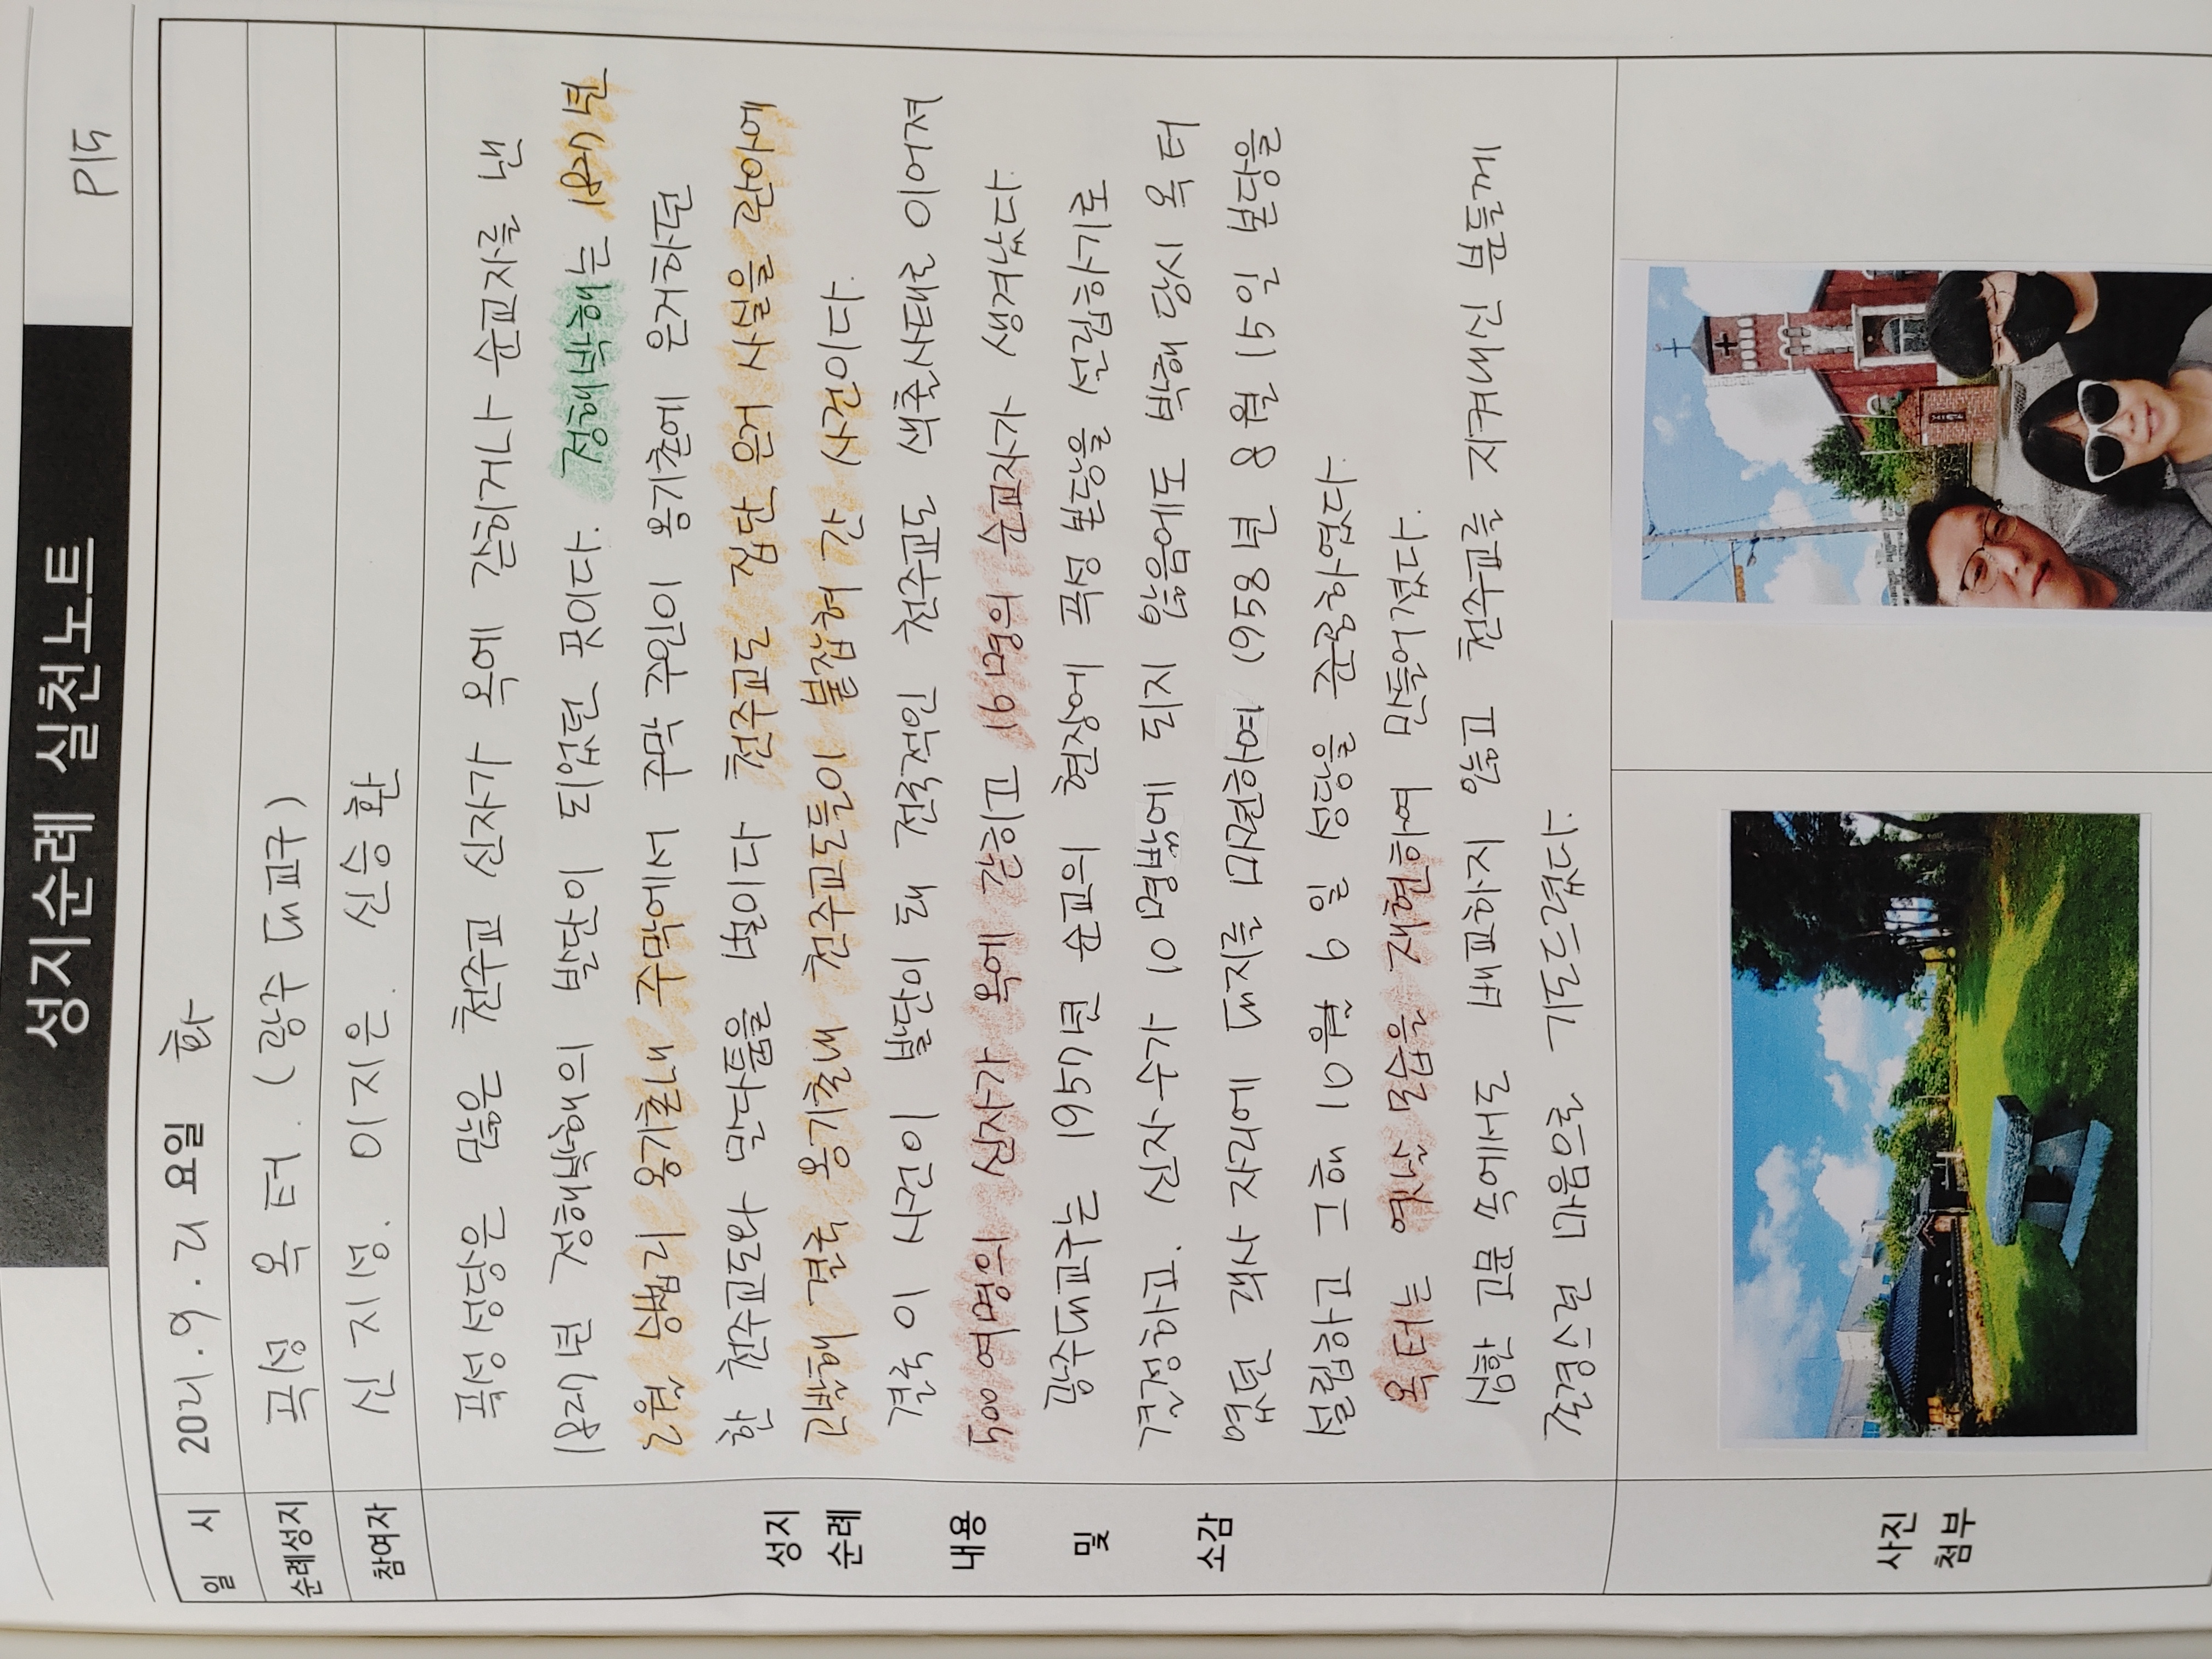 성지순례 실천노트
P15
일 시 2021. 9. 21 요일 화
순례성지 곡성 옥 터. (광주 대교구)
참여자 신지성. 이지은. 신승환
곡성성당은 많은 천주교 신자가 옥에 갇히거나 순교자를 낸
1827년 정해박해의 발단이 되었던 곳이다. 정해박해는 1827년
2월 승법리 옹기촌내 주막에서 주막 주인이 옹기촌에 은거하던
한 천주교도와 말다툼을 벌이다 천주교도 집단 은거 사실을 관아에
고발해 결국 옹기촌내 천주교도들이 붙잡혀 간 사건이다.
결국 이 사건이 발단이 돼 전국적인 천주교도 색출사태로 이어져
500여명의 신자가 옥에 갇히고 16명의 순교자가 생겨났다.
광주대교구는 1957년 순교의 현장에 곡성 본당을 설립하기로
결정하고. 신자 수가 10명밖에 되지 않음에도 박해 당시 옥 터
였던 객사 자리에 대지를 마련하여 1958년 8월 15일 본당을
설립하고 그해 10월 6일 성당을 준공하였다.
옥 터는 옛날 모습을 재현하여 만들어졌다.
심한 고문 속에서도 배교하지 않고 천주교를 지켜내신 분들께
존경스런 마음으로 기도드렸다.
성지
순례
내용
및
소감
사진
첨부